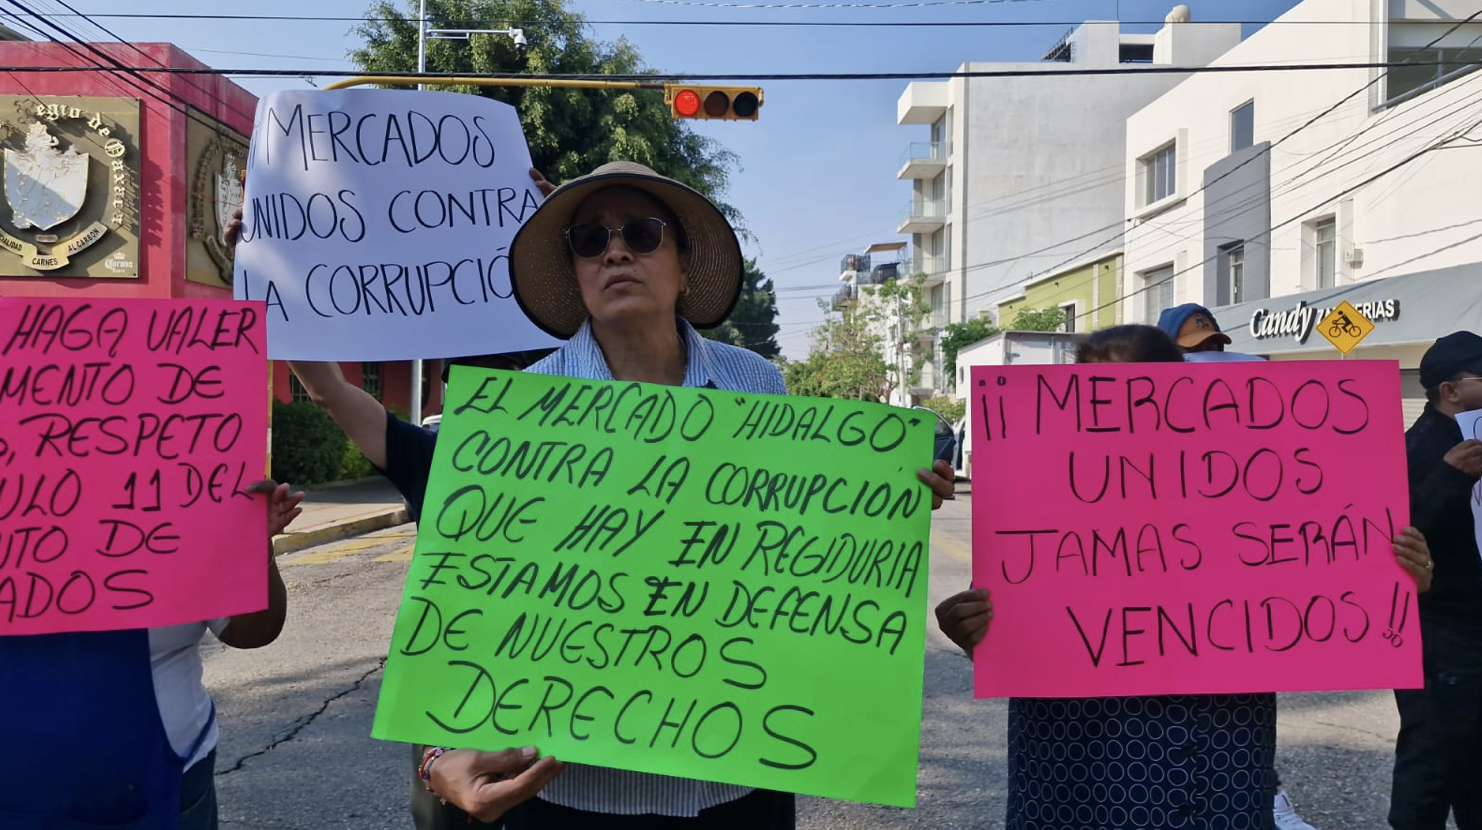 egio de Oaxaca
ESPECIALIDAD CARNES AL CARBON
Corona
¡MERCADOS
UNIDOS CONTRA
LA CORRUPCIÓ
HAGA VALER
MENTO DE
RESPETO
ULO 11 DEL
NTO DE
ADOS
EL MERCADO "HIDALGO"
CONTRA LA CORRUPCIÓN
QUE HAY EN REGIDURIA
ESTAMOS EN DEFENSA
DE NUESTROS
DERECHOS
Candy ZAPATERIAS
¡¡ MERCADOS
UNIDOS
JAMAS SERÁN
VENCIDOS!!